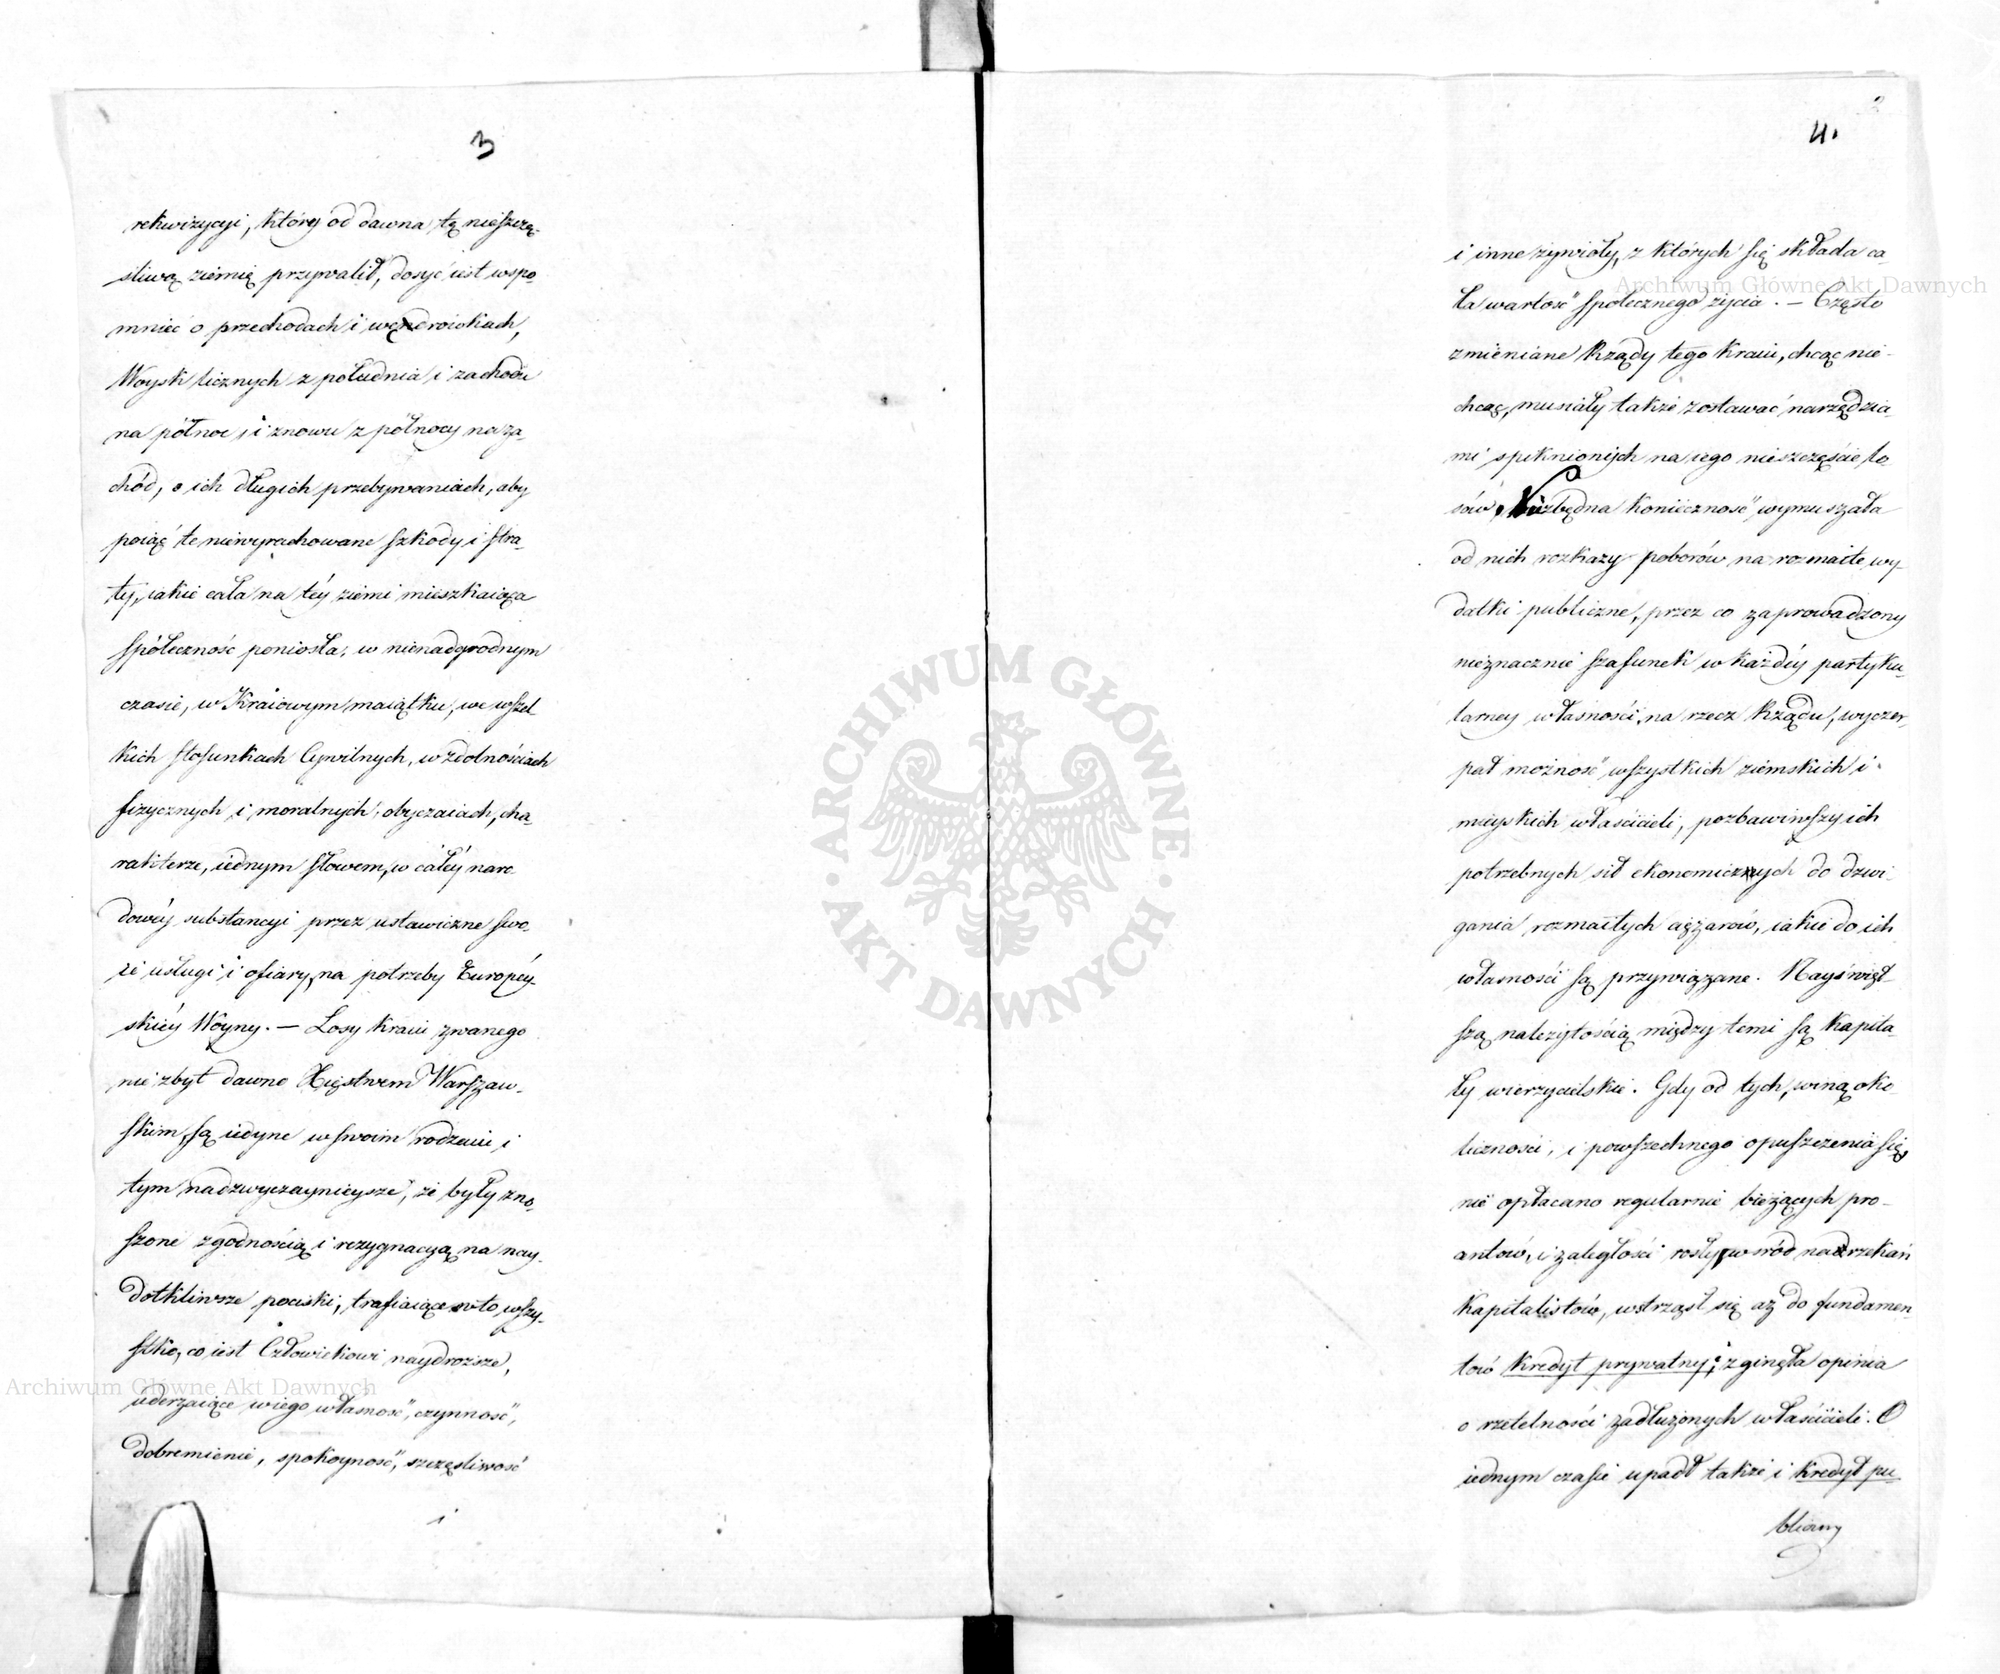 3
rekwizycyi, który od dawna tę nieszczę-
śliwą ziemię przywalił, dosyć iest wspo-
mnieć o przechodach i wędrówkach,
Woysk licznych z południa i zachodu
na północ, i znowu z północy na za-
chód, o ich długich przebywaniach, aby
poiąć te niewyrachowane szkody i stra-
ty, iakie cała na téy ziemi mieszkaiąca
społeczność poniosła, w nienadgrodnym
czasie, w Kraiowym maiątku, we wszel-
kich stosunkach Cywilnych, w zdolnościach
fizycznych i moralnych, obyczaiach, cha-
rakterze, iednym słowem, w całéy naro-
dowéy substancyi przez ustawiczne swo-
ie usługi i ofiary, na potrzeby Européy-
skiéy Woyny. — Losy Kraiu zwanego
nie zbyt dawno Xięstwem Warszaw-
skim, są iedyne w swoim rodzaiu i
tym nadzwyczaynieysze, że były zno-
szone z godnością i rezygnacyą na nay-
dotkliwsze pociski, trafiaiące w to wszy-
stko, co iest Człowiekowi naydroższe,
uderzaiące w iego własność, czynność,
dobremienie, spokoyność, szczęśliwość
i
4.
i inne żywioły, z których się składa ca-
ła wartość społecznego życia. — Często
zmieniane Rządy tego Kraiu, chcąc nie-
chcąc, musiały także zostawać narzędzia-
mi spiknionych na iego nieszczęście lo-
sów, Niezbędna konieczność wymuszała
od nich rozkazy poborów na rozmaite wy-
datki publiczne, przez co zaprowadzony
nieznacznie szafunek w każdéy partyku-
larney własności, na rzecz Rządu, wyczer-
pał możność wszystkich ziemskich i
mieyskich właścicieli, pozbawiwszy ich
potrzebnych sił ekonomicznych do dźwi-
gania rozmaitych ciężarów, iakie do ich
własności są przywiązane. Nayświęt-
szą należytością między temi są Kapita-
ły wierzycielskie. Gdy od tych, winą oko-
liczności, i powszechnego opuszczenia się,
nie opłacano regularnie bieżących pro-
centów, i zaległości rosły, wśród narzekań
Kapitalistów, wstrząsł się aż do fundamen-
tów Kredyt prywatny, i zginęła opinia
o rzetelności zadłużonych właścicieli. O
iednym czasie upadł także i kredyt pu-
bliczny
Archiwum Główne Akt Dawnych
Archiwum Główne Akt Dawnych
ARCHIWUM GŁÓWNE · AKT DAWNYCH ·